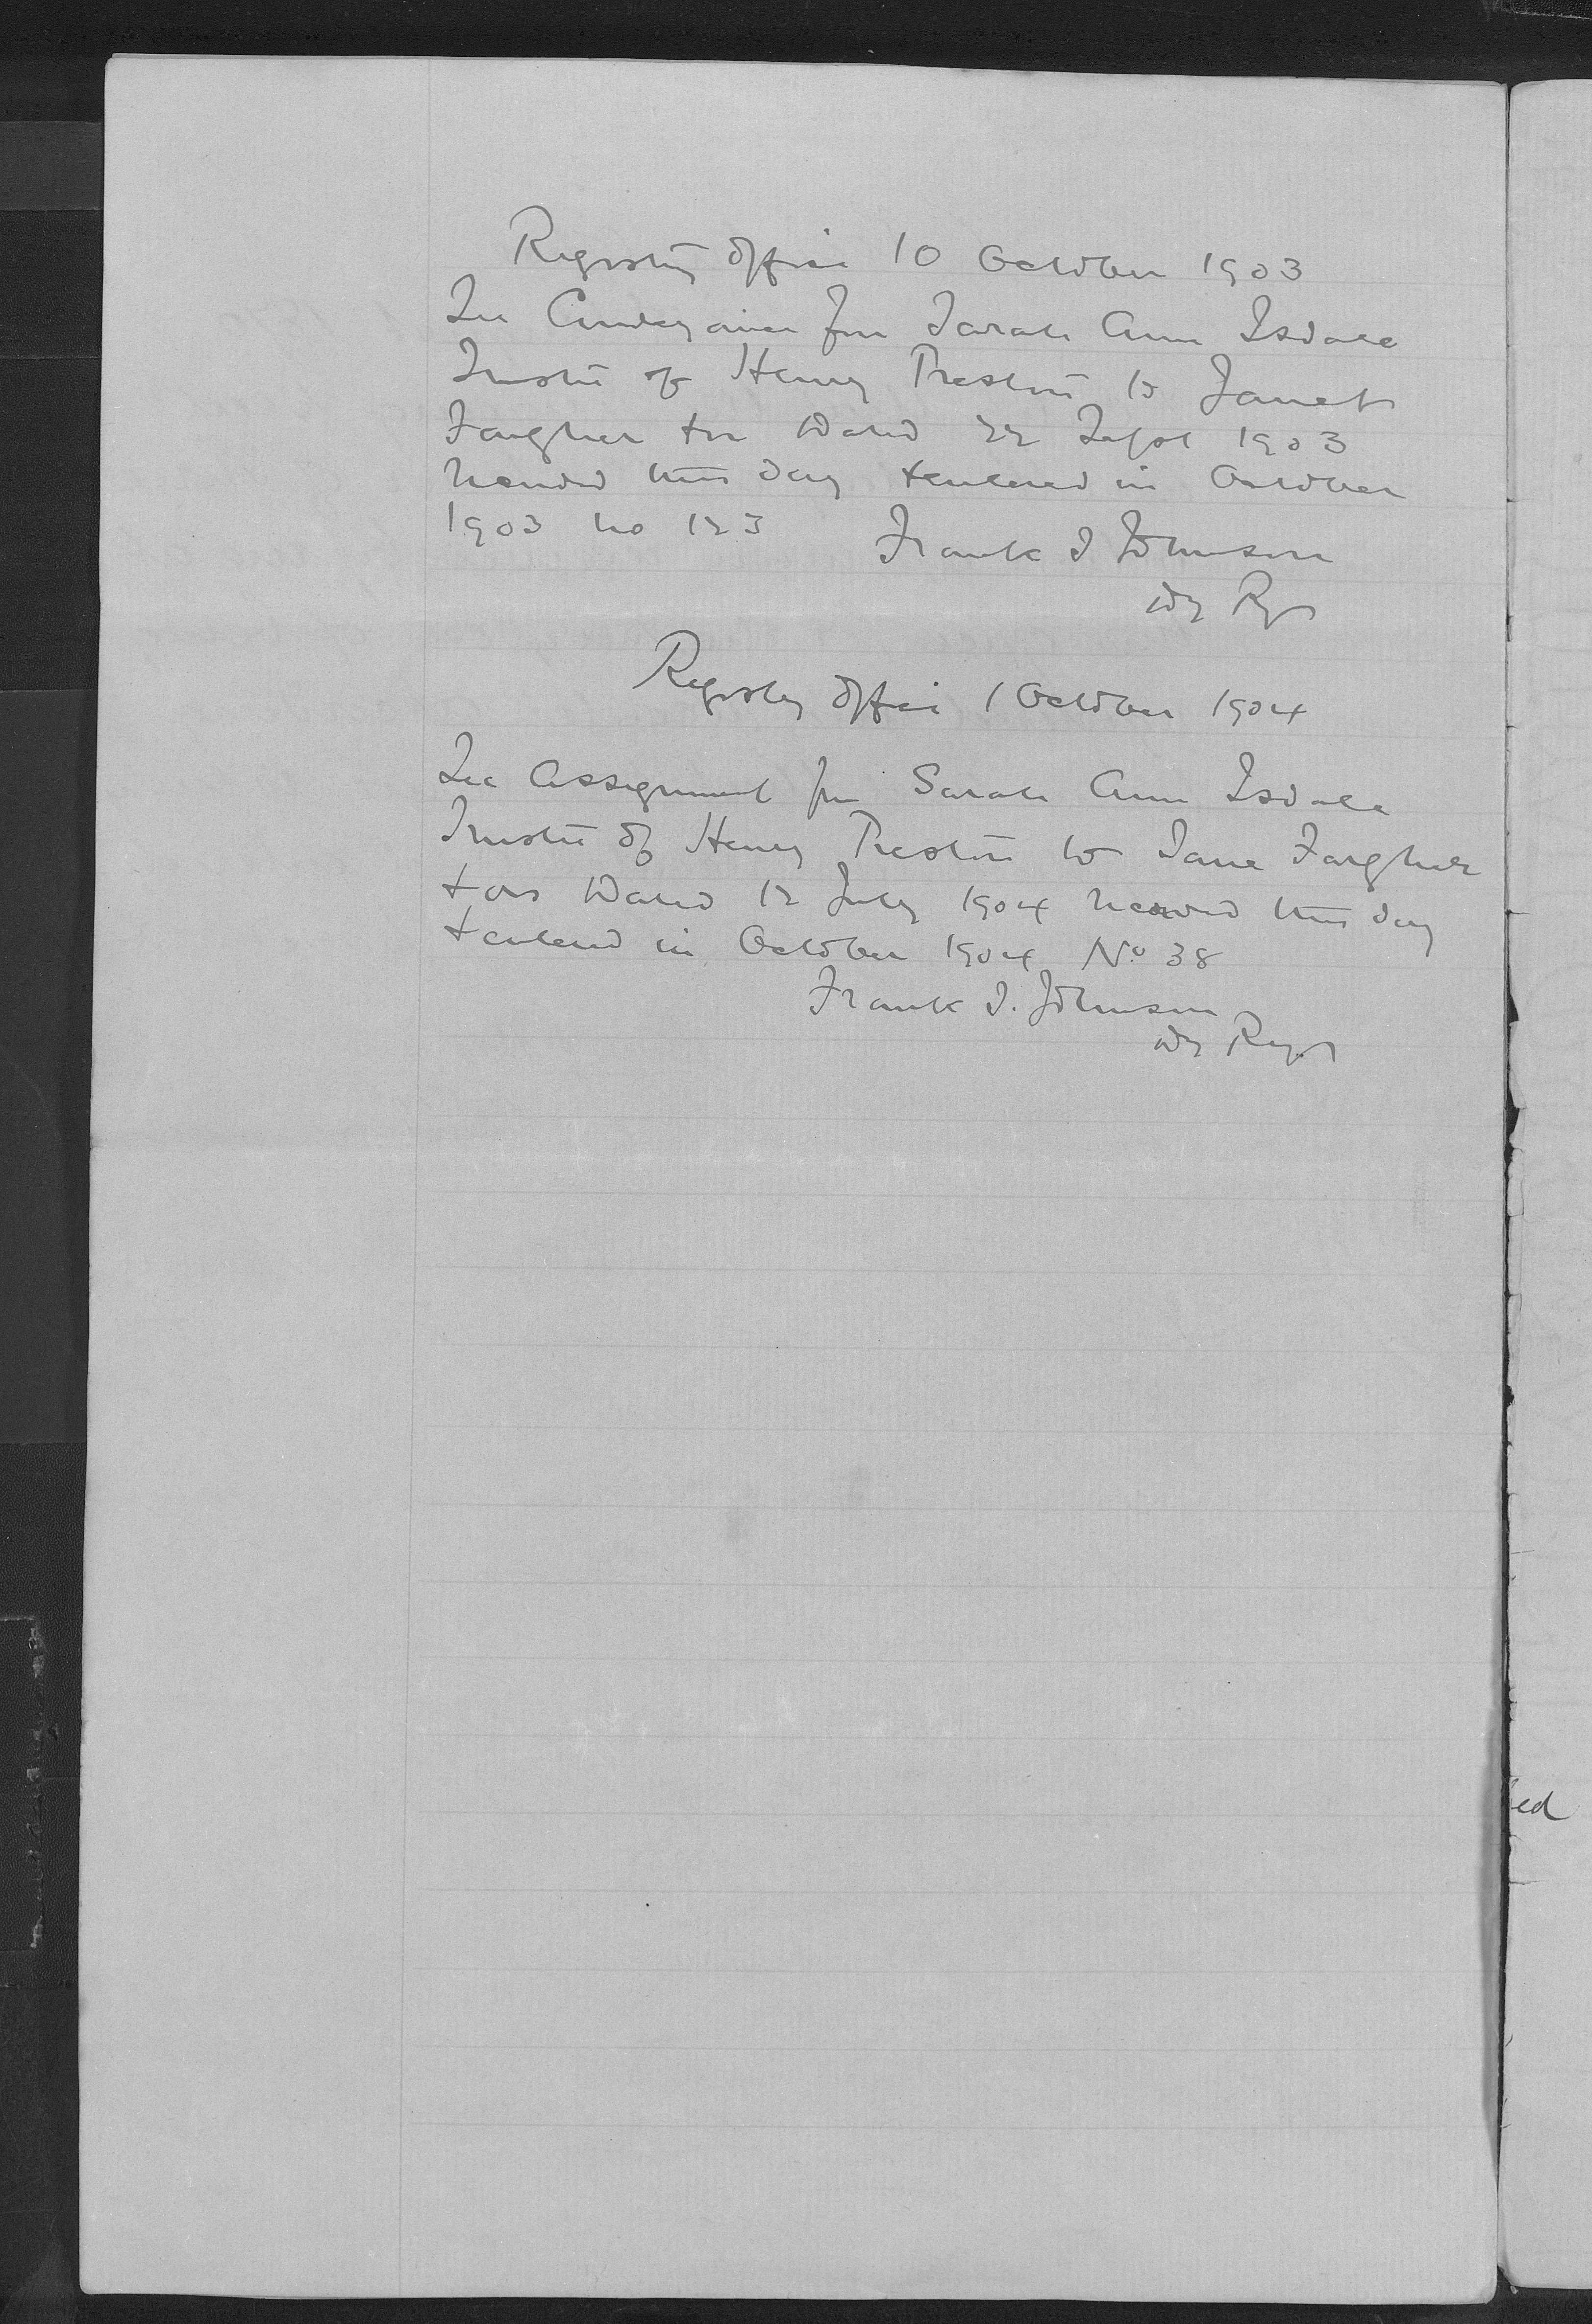 Registry Office 10 October 1903
See Conveyance from Sarah Ann Isdale
Trustee of Henry Preston to Janet
Fargher + or Dated 22 Sept 1903
recorded this day + entered in October
1903 no 123 Frank S Johnson
Dy Regr
Registry Office 1 October 1904
See Assignment from Sarah Ann Isdale
Trustee of Henry Preston to Jane Fargher
+ ors Dated 12 July 1904 recorded this day
+ entered in October 1904 No 38
Frank S. Johnson
Dy Regr
ed